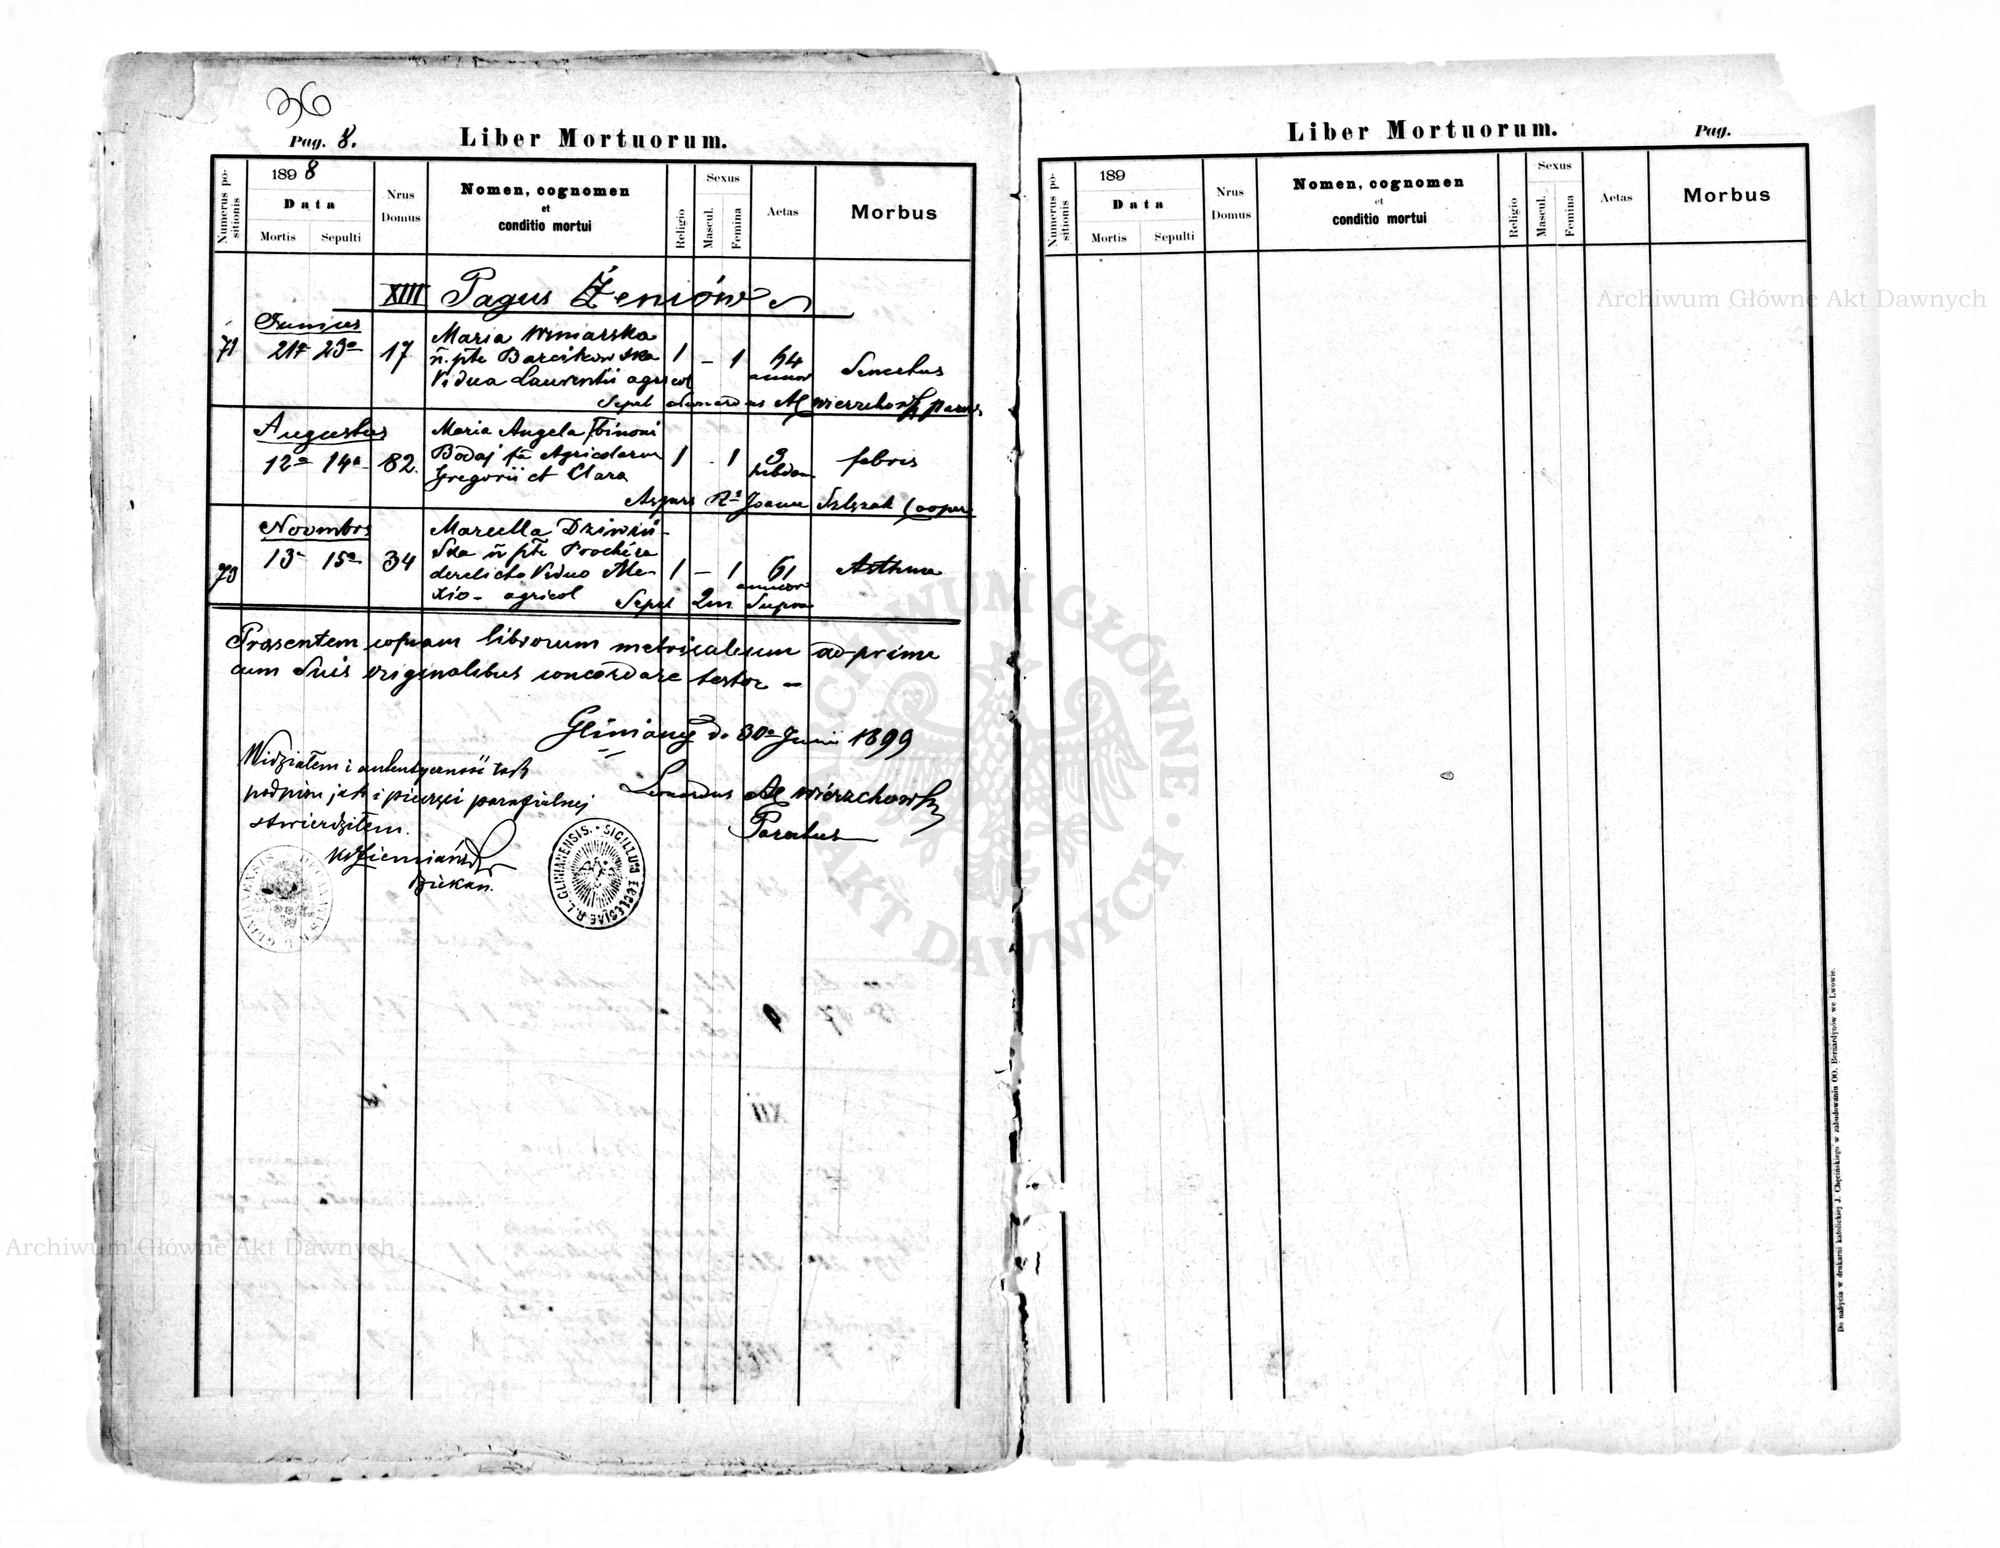 36
Pag. 8.
Liber Mortuorum.
Numerus positionis
1898
Data
Mortis
Sepulti
Nrus Domus
Nomen, cognomen
et
conditio mortui
Religio
Sexus
Mascul.
Femina
Aetas
Morbus
XIII Pagus Żeniów
Junius
71 21a 23a 17 Maria Winiarska 1 – 1 64 Senectus
ñ. pte Barcikowska annor
Vidua Laurentii agricol
Sepel Leonardus Wierzchowski
Augustus
12a 14a 82. Maria Angela 1 - 1 3 febris
Bodaj fa Agricolarum hebdom
Gregorii et Clara
Joann Szlęzak Cooper
Novembris
73 13a 15a 34 Marcella Dziwiń- 1 – 1 61 Asthma
ska ñ pte Prochera annor
derelicta Viduo Ale-
xio - agricol Sepel Qui Supra
Praesentem copiam librorum metricalium ad-prime
cum suis originalibus concordare testor –
Gliniany d. 30a Junii 1899
Leonardus Wierzchowski
Parochus
Widziałem i autentyczność tak
podpisu jak i pieczęci parafialnej
stwierdziłem.
Ziemiański
Dziekan.
SIGILLUM ECCLESIAE R. L. GLINIANENSIS.
Liber Mortuorum.
Pag.
Numerus positionis
189
Data
Mortis
Sepulti
Nrus Domus
Nomen, cognomen
et
conditio mortui
Religio
Sexus
Mascul.
Femina
Aetas
Morbus
Do nabycia w drukarni katolickiej J. Chęcińskiego w zabudowaniu OO. Bernardynów we Lwowie.
Archiwum Główne Akt Dawnych
ARCHIWUM GŁÓWNE AKT DAWNYCH
Archiwum Główne Akt Dawnych